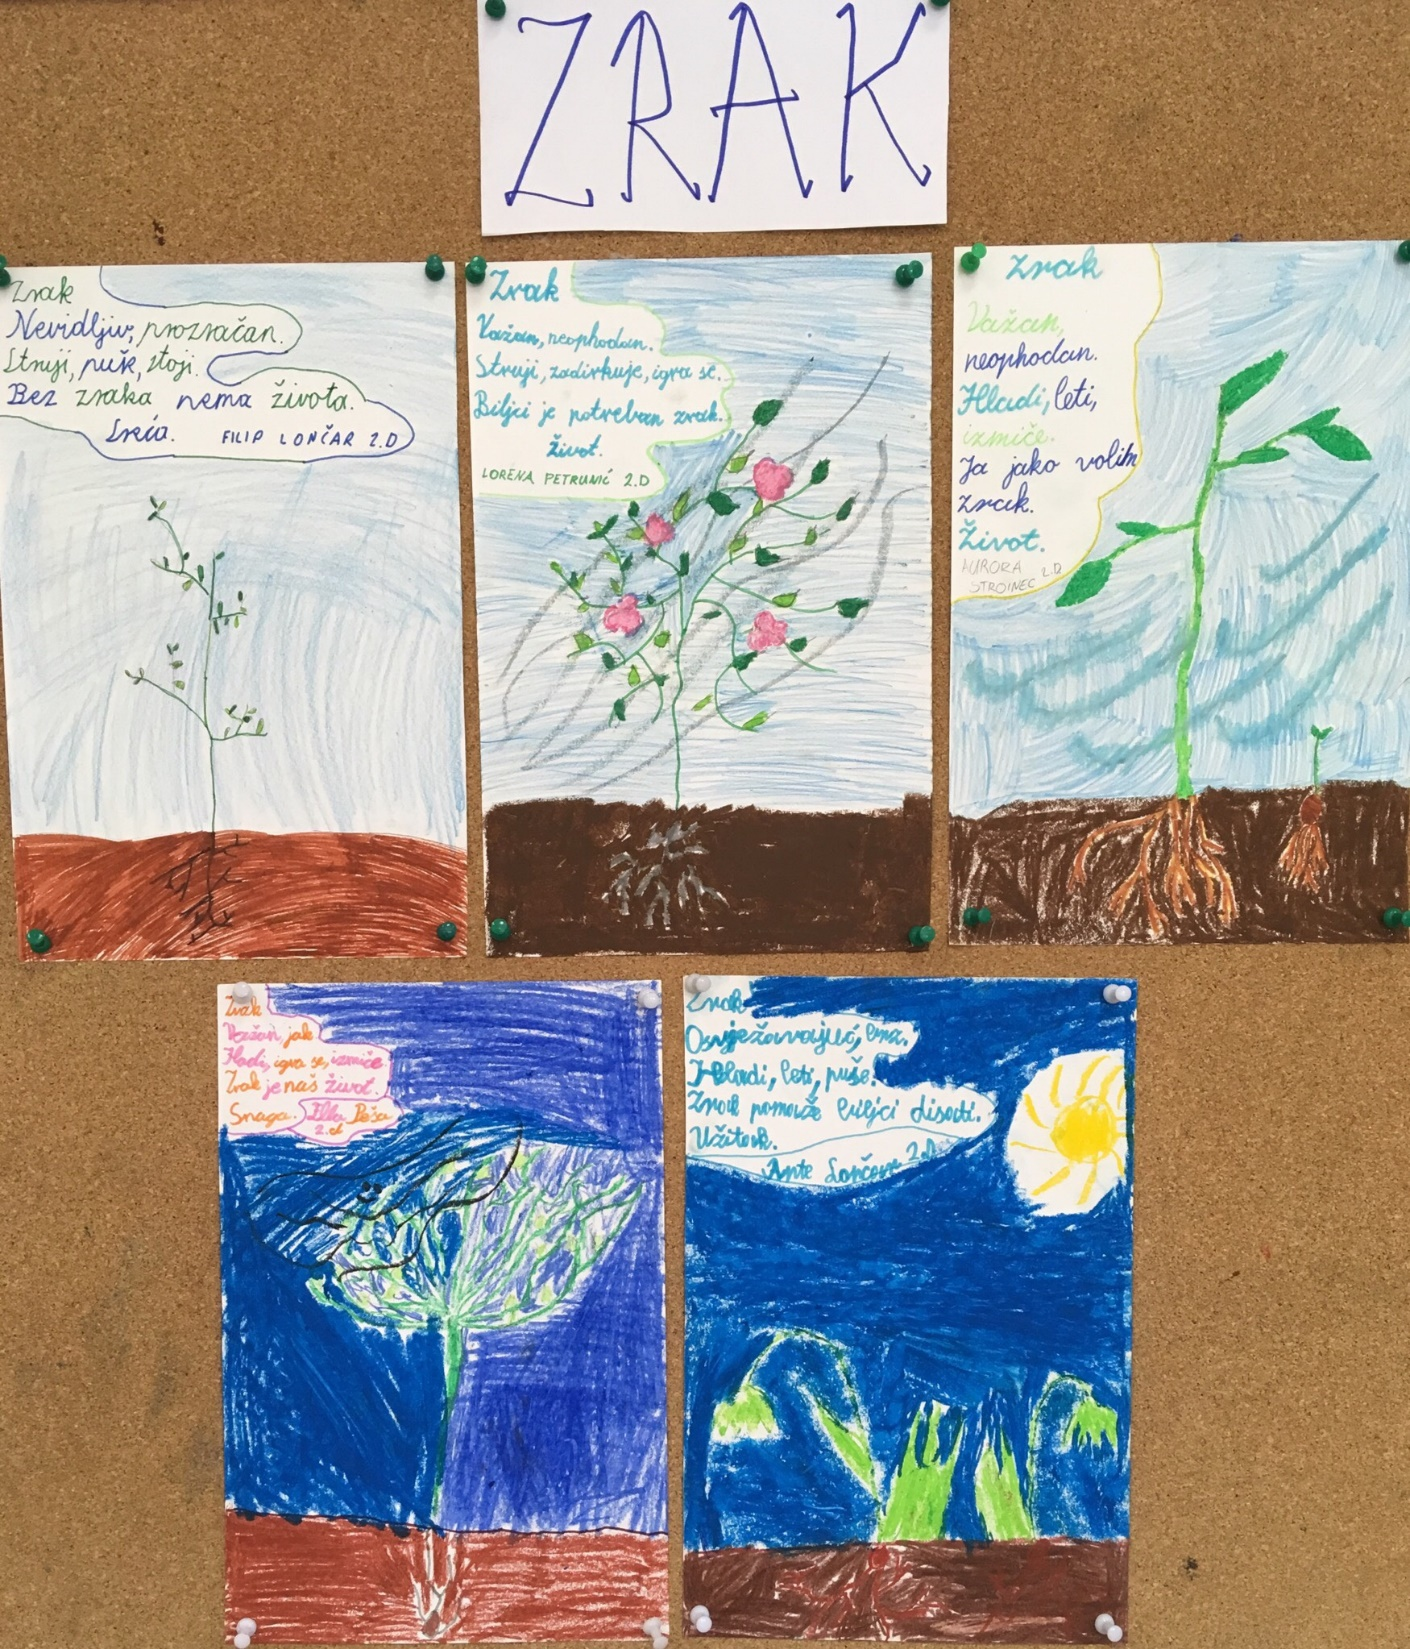 ZRAK
Zrak
Nevidljiv, prozračan.
Struji, puše, stoji.
Bez zraka nema života.
Sreća. FILIP LONČAR 2.D
Zrak
Važan, neophodan.
Struji, zadirkuje, igra se.
Biljci je potreban zrak.
Život.
LORENA PETRUNIĆ 2.D
Zrak
Važan,
neophodan.
Hladi, leti,
izmiče.
Ja jako volim
zrak.
Život.
AURORA 2.D
STROINEC
Zrak
Važan, jak
Hladi, igra se, izmiče
Zrak je naš život.
Snaga. Peša
2.d
Zrak
Osvježavajuć,
Hladi, leti, puše.
Zrak pomaže biljci disati.
Užitak.
Ante Lončar 2.D